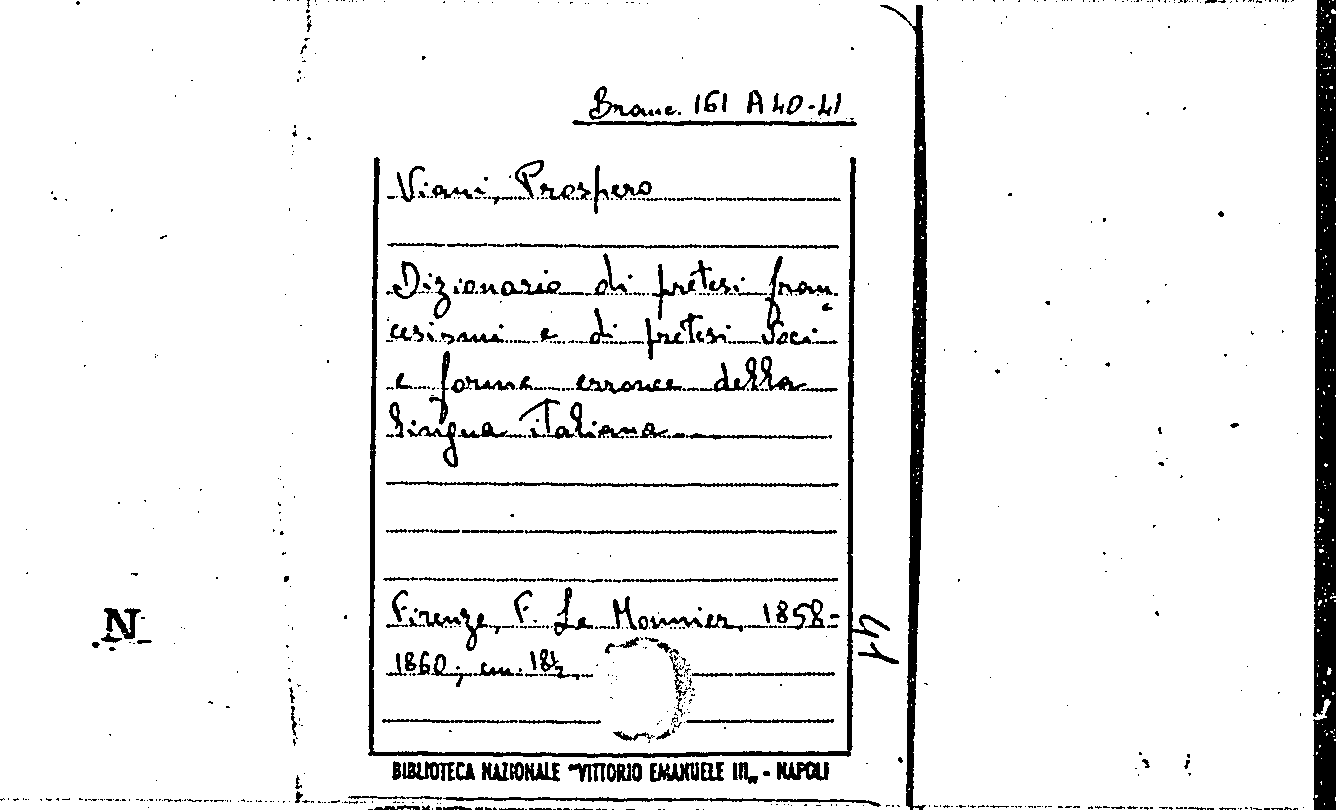 Branc. 161 A 40-41
Viani, Prospero
Dizionario di pretesi fran-
cesismi e di pretesi voci
e forme erronee della
lingua italiana
Firenze, F. Le Monnier, 1858-
1860; cm. 18½
41
N
BIBLIOTECA NAZIONALE "VITTORIO EMANUELE III„ - NAPOLI